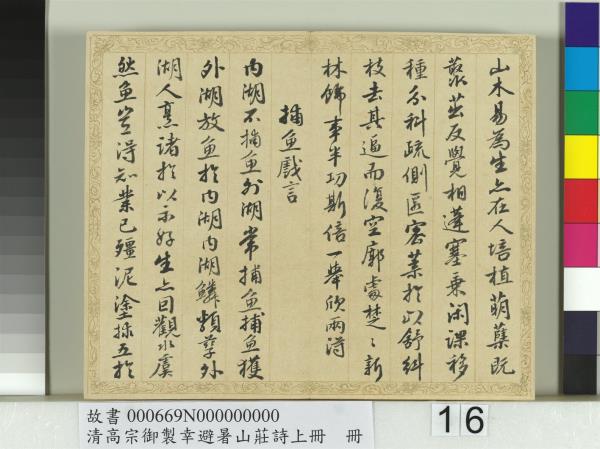 山木易為生亦在人培植萌蘖既
叢茁反覺相蓬塞乘閒課移
種分科疏側匿密葉於以舒糾
枝去其逼而復空廓處楚〻新
林飾事半功斯倍一舉欣兩得
捕魚戲言
內湖不捕魚外湖常捕魚捕魚獲
外湖放魚於內湖內湖鱗頻孳外
湖人烹諸於以示好生亦曰觀水虞
然魚豈得知業已殭泥塗操五於
故書 000669N000000000
清高宗御製幸避暑山莊詩上冊 冊
16